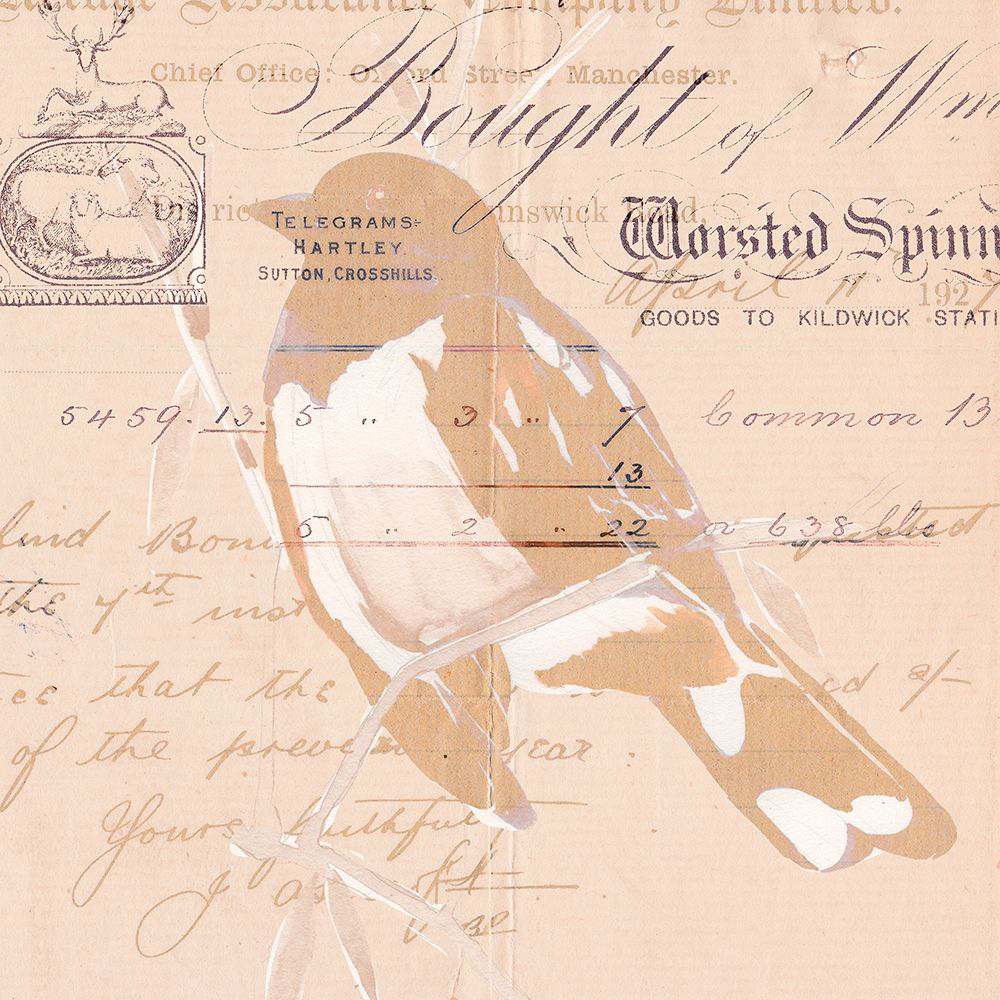 Company Limited.
Chief Office: Oxford Street, Manchester.
Bought of Wm
District
nswick Road,
TELEGRAMS:-
HARTLEY,
SUTTON, CROSSHILLS.
Worsted Spinn
April 11 192
GOODS TO KILDWICK STATI
5459. 13. 5 " 3 " 7 Common 13
13
5 " 2 " 22 or 638 lbs
the 4th inst
that the
of the year.
Yours faithfully